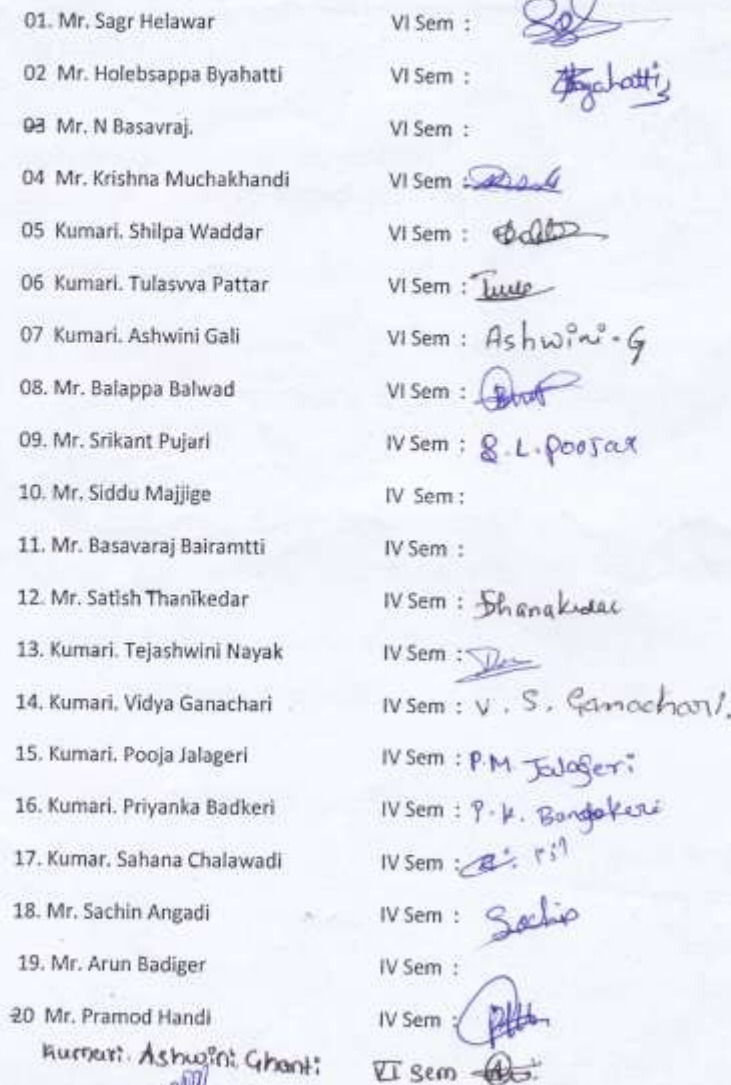 01. Mr. Sagr Helawar VI Sem :
02 Mr. Holebsappa Byahatti VI Sem : Byahatti
03 Mr. N Basavraj. VI Sem :
04 Mr. Krishna Muchakhandi VI Sem :
05 Kumari. Shilpa Waddar VI Sem :
06 Kumari. Tulasvva Pattar VI Sem :
07 Kumari. Ashwini Gali VI Sem : Ashwini.G
08. Mr. Balappa Balwad VI Sem :
09. Mr. Srikant Pujari IV Sem : S.L.Poojar
10. Mr. Siddu Majjige IV Sem :
11. Mr. Basavaraj Bairamtti IV Sem :
12. Mr. Satish Thanikedar IV Sem :
13. Kumari. Tejashwini Nayak IV Sem :
14. Kumari. Vidya Ganachari IV Sem : V. S. Ganachari.
15. Kumari. Pooja Jalageri IV Sem : P.M. Jalageri
16. Kumari. Priyanka Badkeri IV Sem : P. K.
17. Kumar. Sahana Chalawadi IV Sem :
18. Mr. Sachin Angadi IV Sem : Sachin
19. Mr. Arun Badiger IV Sem :
20 Mr. Pramod Handi IV Sem :
Kumari. Ashwini Ghanti VI Sem